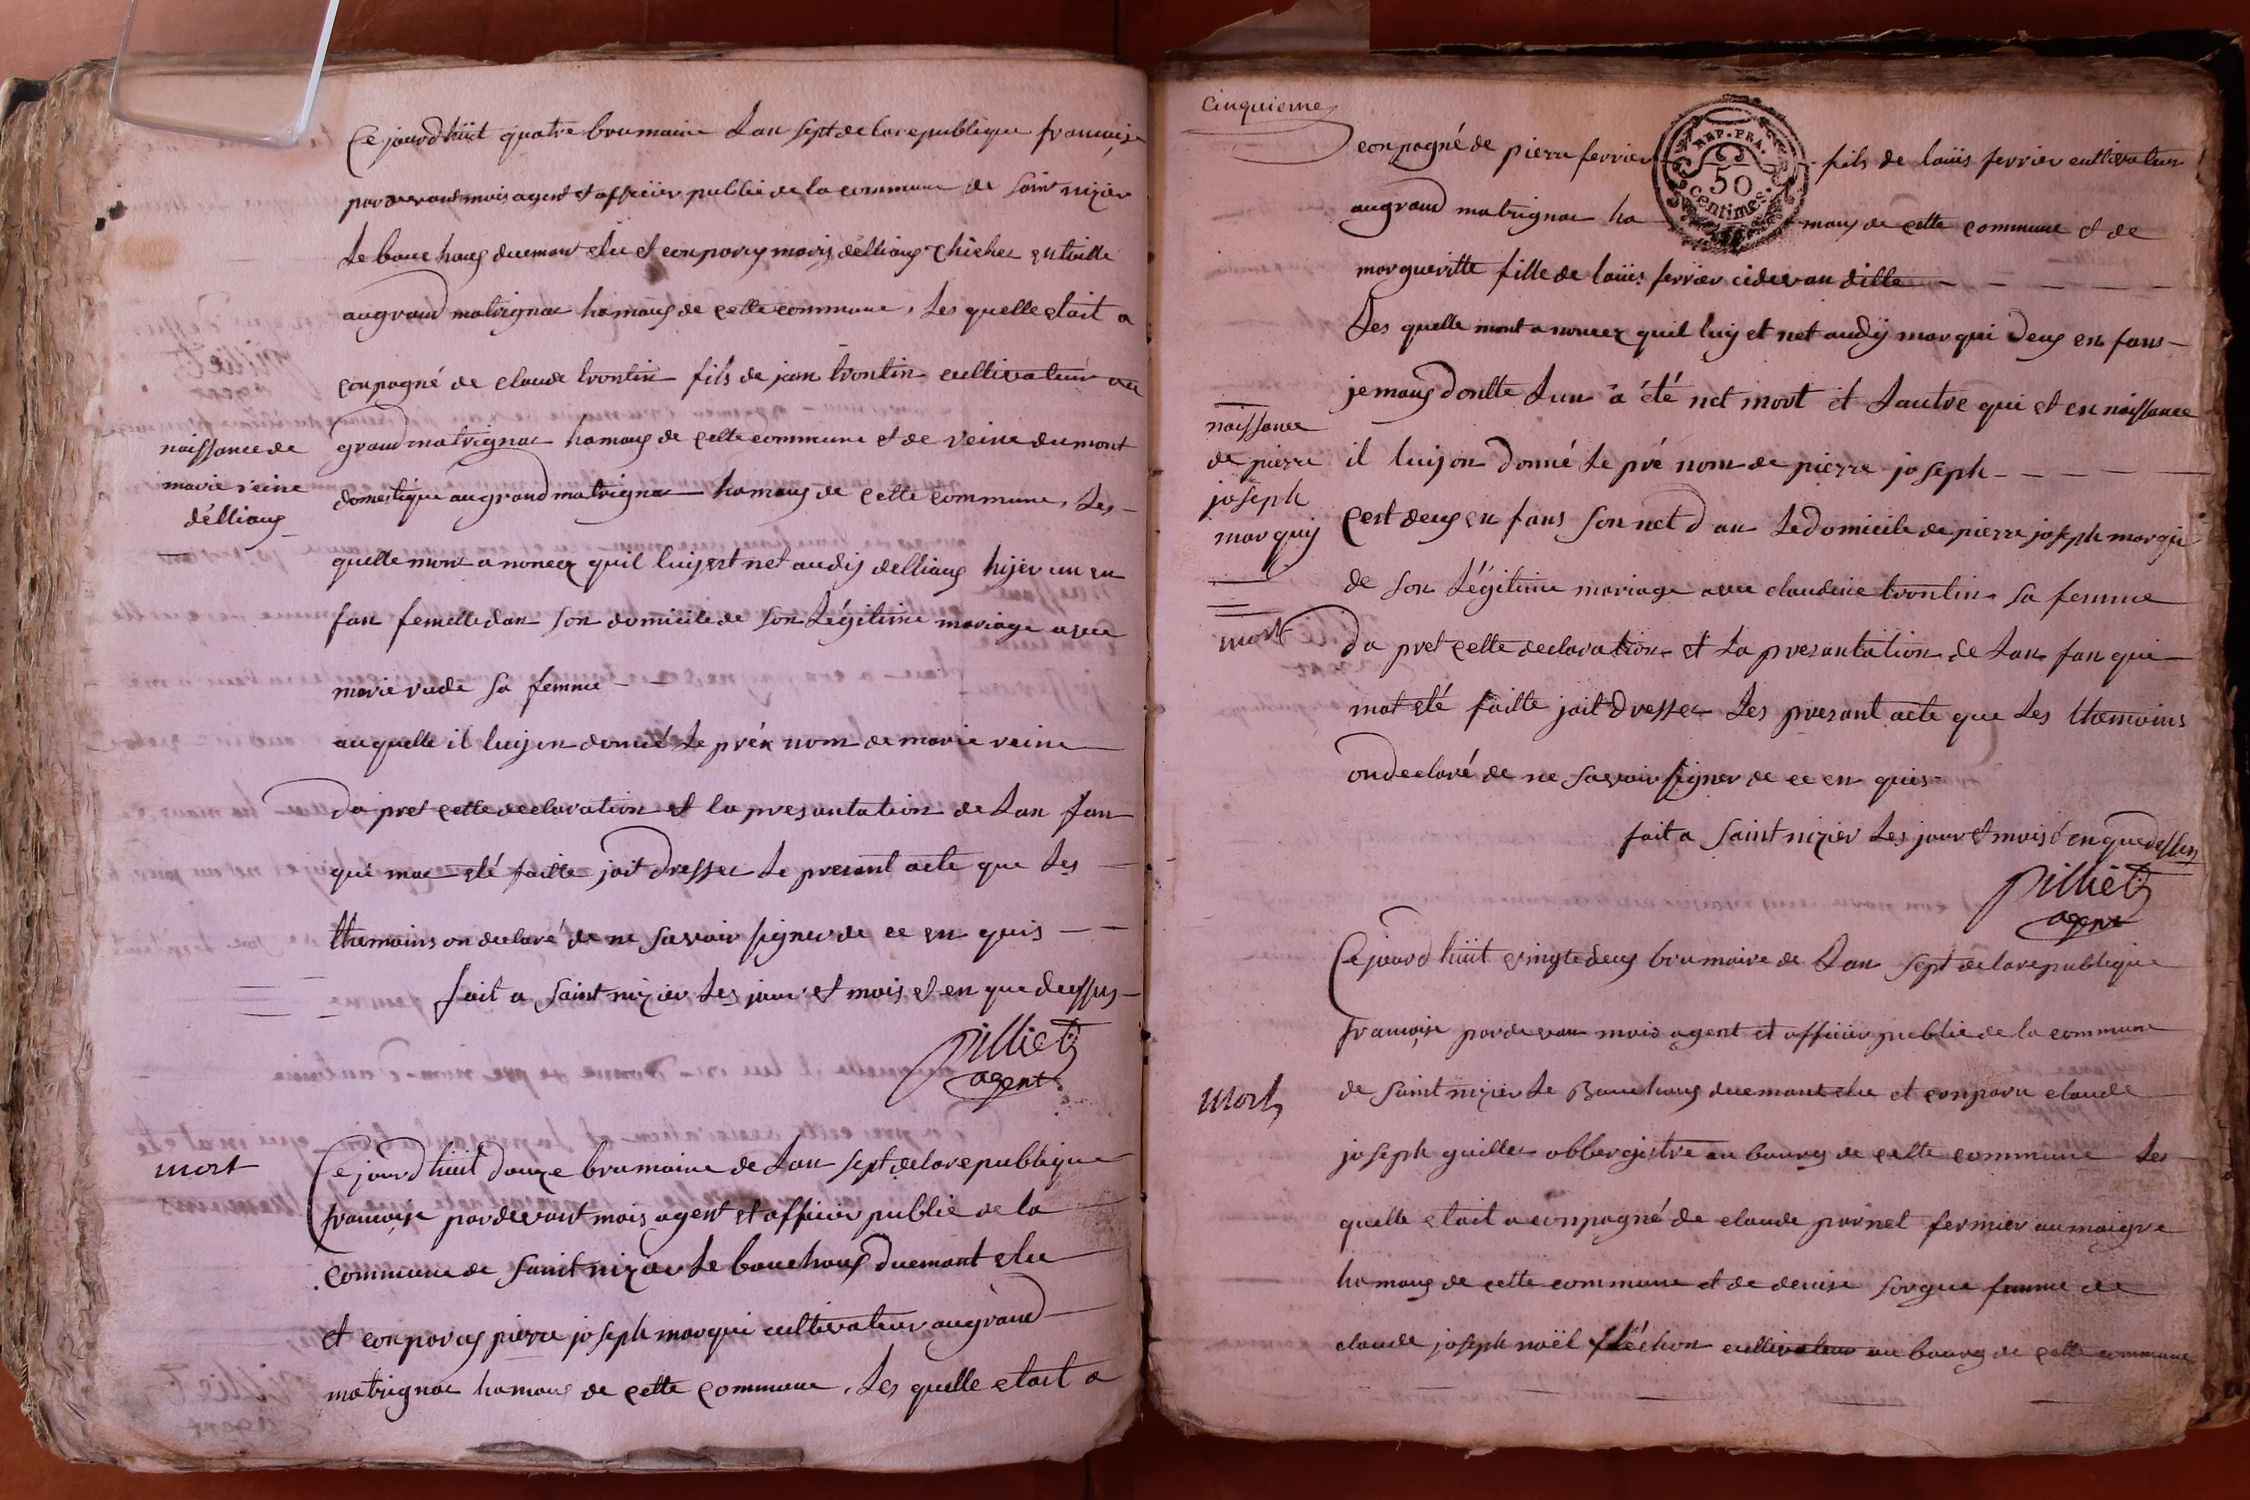 Ce jourdhüit quatre brumaire Lan sept de la republique francaise
pardevant mois agent et officiier public de la commune de Saint nizier
Le bouchous duemant elu et conparus maris délliaus
augrand matrignac hamaus de cette commune, Les quelle etait a
conpagné de claude trontin fils de jan trontin cultivateur au
grand matrignac hamaus de cette commune et de reine dumont
domestique augrand matrignac hamaus de cette commune, Les
quelle mont a noncer quil luij est net audij delliaus hijer un en
fan femelle dan son domicile de son Légitime mariage avec
marie rude sa femme
auquelle il luij on donné Le pré nom de marie reine
Da pret cette declaration et la presantation de Lan fan
qui mat eté faitte jait dresser Le presant acte que Les
themoins on declaré de ne savoir signer de ce en quis
fait a Saint nizier Les jour et mois et en que deessus
pilliet
agent
naissance de
marie reine
délliaus
mort
Ce jourdhüit douze brumaire de Lan sept de la republique
francaise pardevant mois agent et officier public de la
commune de Saint nizier Le bouchous duemant elu
et conparus pierre joseph marqui cultivateur augrand
matrignac hamaus de cette commune, Les quelle etait a
Cinquieme
conpagné de pierre ferrier fils de loüis ferrier cultivateur
REP. FRA.
50
Centimes.
augrand matrignac ha maus de cette commune et de
margueritte fille de loüis ferrier cidevan ditte
Les quelle mont a noncer quil luij et net audij marqui deus en fans
jemaus doulte Lun a été net mort et Lautre qui et en naissance
il luij on donné Le pré nom de pierre joseph
cest deus en fans son net dan Le domicile de pierre joseph marqui
de son Légitime mariage avec claudine trontin sa femme
Da pret cette declaration et La presantation de Lan fan qui
mat eté faitte jait dresser Les presant acte que Les themoins
on declaré de ne savoir signer de ce en quis
fait a Saint nizier Les jour et mois et en que dessus
pilliet
agent
naissance
de pierre
joseph
marquij
mort
Ce jourd hüit vingtedeus brumaire de Lan sept de la republique
francaise pardevan mois agent et officier public de la commune
de Saint nizier Le Bouchous duemant elu et conparu claude
joseph guiller obbergistre au bourg de cette commune Les
quelle etait a conpagné de claude parnet fermier au maigre
hamaus de cette commune et de denise sorgue femme de
claude joseph noël fléchon cultivateur au bourg de cette commune
Mort